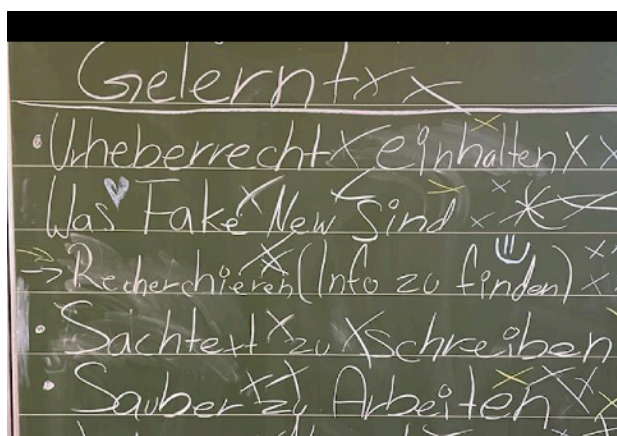 Gelernt
• Urheberrecht einhalten
Was Fake New Sind
→ Recherchieren (Info zu finden)
• Sachtext zu schreiben
• Sauber zu Arbeiten